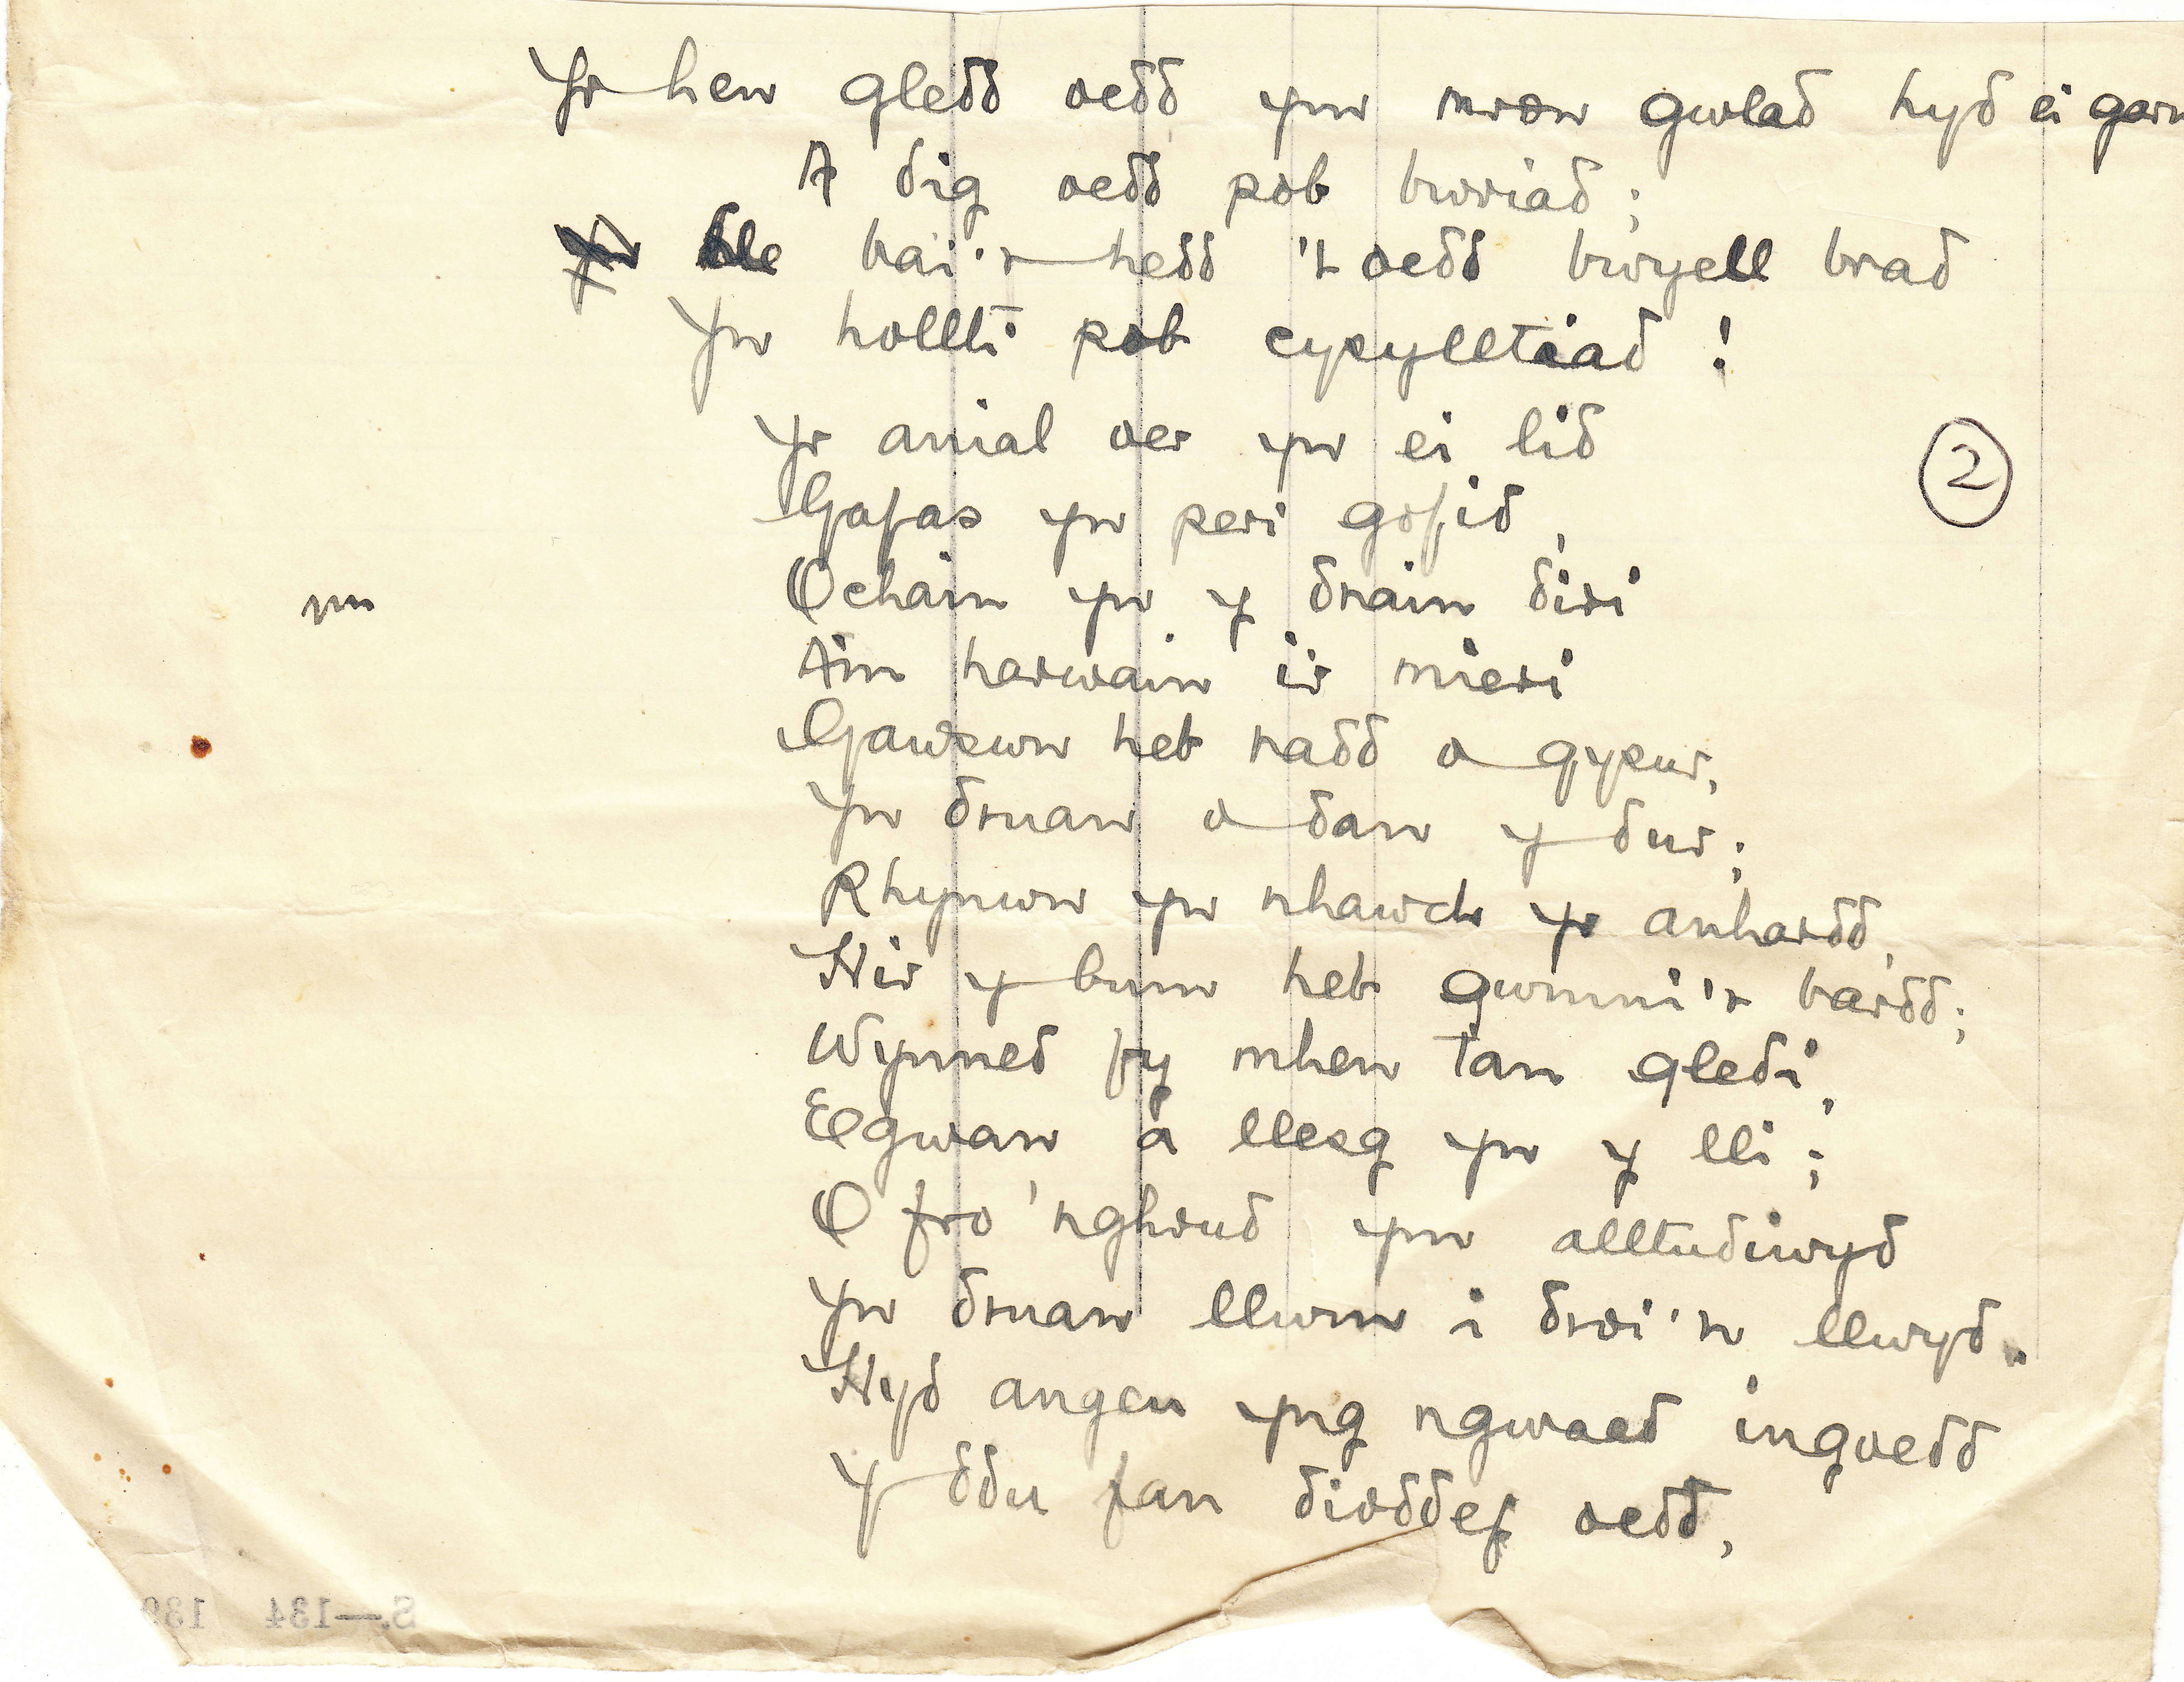 Yr hen gledd oedd ym mron gwlad hyd ei garn
A dig oedd pob bwriad;
ble bai'r hedd 'r oedd bwyell brad
Yn hollti pob cysylltiad!
Yr anial oer yn ei lid
②
Gafas yn peri gofid,
Ochain yn y drain diri
A'm harwain i'r mieri
Gawswn heb nadd o gysur,
Yn druan o dan y dur;
Rhynwn yn nhawch yr anhardd,
Hir y bum heb gwmni'r bardd;
Wynned fy mhen tan gledi,
Egwan a llesg yn y lli;
O fro 'nghrud yn alltudiwyd
Yn druan llwm i droi'n llwyd.
Hyd angeu yng ngwaed ingoedd
Y ddu fan dioddef oedd,
S.—134